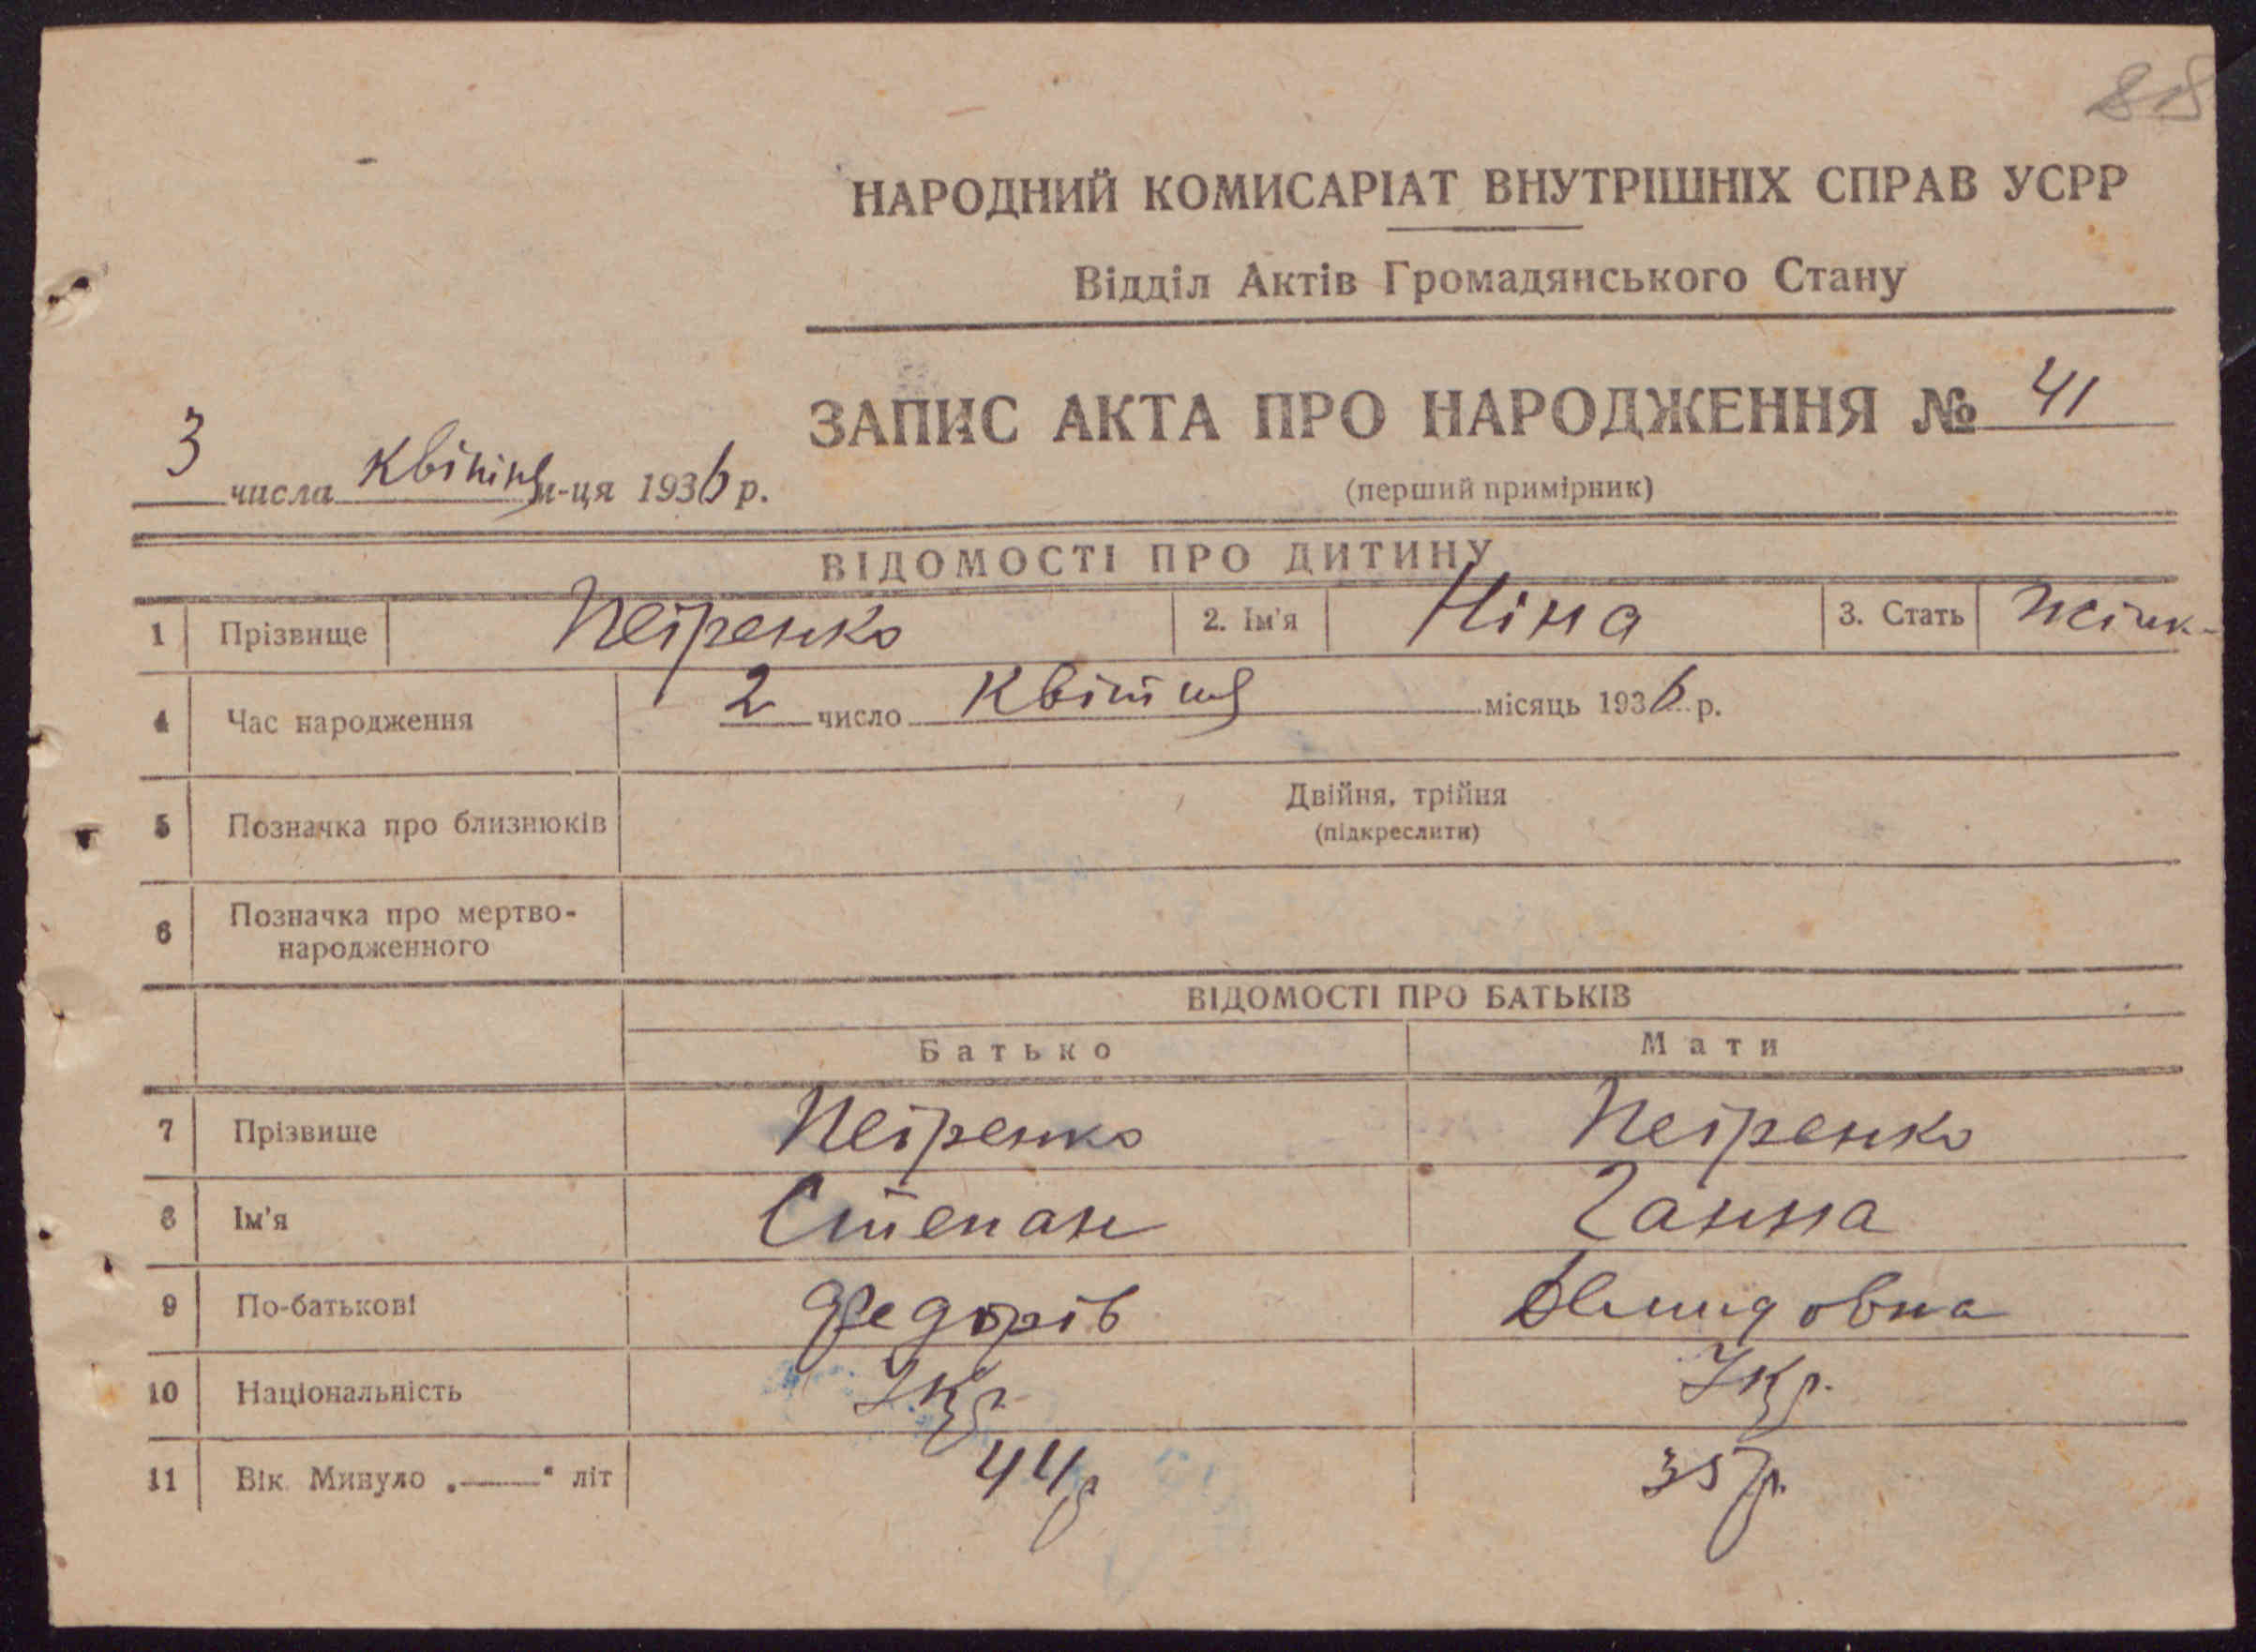 818
НАРОДНИЙ КОМИСАРІАТ ВНУТРІШНІХ СПРАВ УСРР
Відділ Актів Громадянського Стану
ЗАПИС АКТА ПРО НАРОДЖЕННЯ № 41
3 числа квітня м-ця 1936 р.
(перший примірник)
ВІДОМОСТІ ПРО ДИТИНУ
1 Прізвище Петренко 2. Ім'я Ніна 3. Стать жінк.
4 Час народження 2 число квітня місяць 1936 р.
5 Позначка про близнюків Двійня, трійня
(підкреслити)
6 Позначка про мертво-
народженного
ВІДОМОСТІ ПРО БАТЬКІВ
Батько Мати
7 Прізвище Петренко Петренко
8 Ім'я Степан Ганна
9 По-батькові Федорів Демидовна
10 Національність Укр. Укр.
11 Вік. Минуло „——" літ 44 р 35 р.